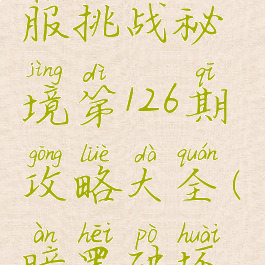 服挑战秘
jìng dì qī
境第126期
gōng lüè dà quán
攻略大全(
àn hēi pò huài
暗黑破坏